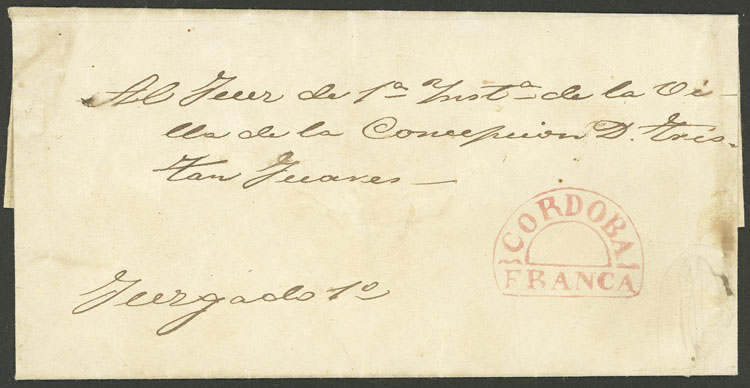 Al Juez de 1ª Instª de la Vi-
lla de la Concepcion D. Tris-
tan Juares
CORDOBA
FRANCA
Juzgado 1º